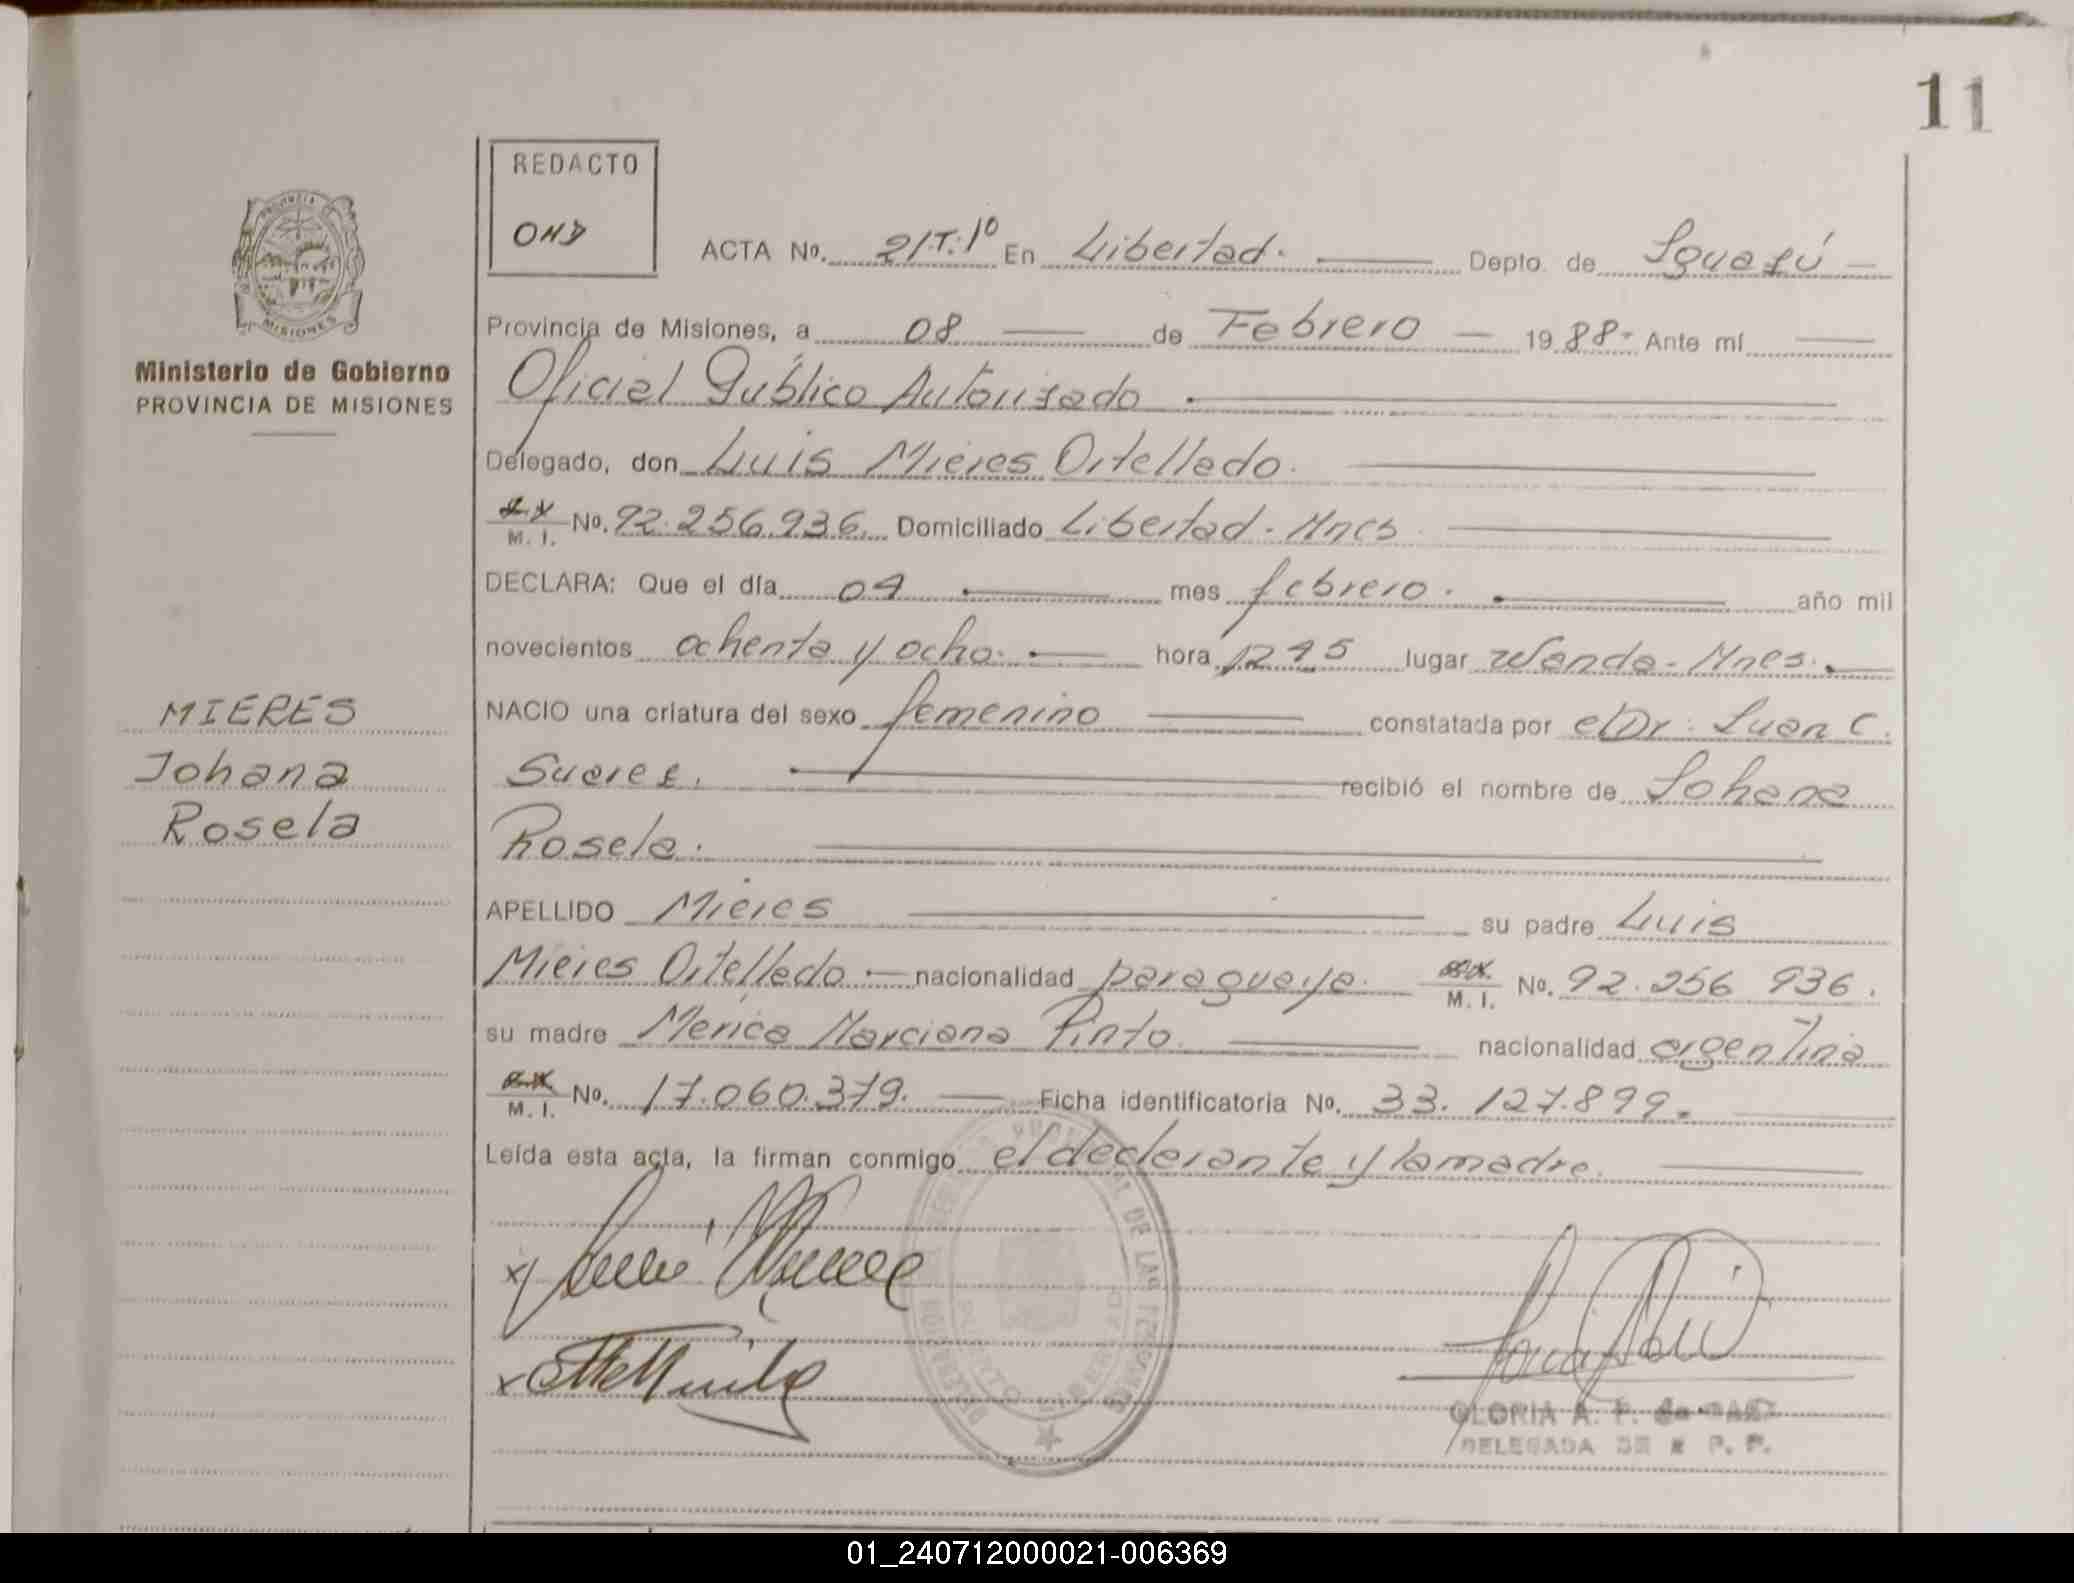 11
REDACTO
OHD
ACTA No. 21T:1º En Libertad. Depto. de Iguazú
PROVINCIA DE
MISIONES
Provincia de Misiones, a 08 de Febrero 1988- Ante mí
Ministerio de Gobierno
PROVINCIA DE MISIONES
Oficial Público Autorizado
Delegado, don Luis Mieres Ortellado.
M. I. No. 92.256.936. Domiciliado Libertad - Mnes
DECLARA: Que el día 04 mes febrero. año mil
novecientos ochenta y ocho. hora 1245 lugar Wanda - Mnes.
NACIO una criatura del sexo femenino constatada por el Dr. Juan C.
Suarez. recibió el nombre de Johana
Rosela.
MIERES
Johana
Rosela
APELLIDO Mieres su padre Luis
Mieres Ortellado nacionalidad paraguaya. M. I. No. 92.256 936.
su madre Merica Marciana Pinto nacionalidad argentina
M. I. No. 17.060.379. Ficha identificatoria No. 33.127.899.
Leída esta acta, la firman conmigo el declarante y la madre.
x
x
DE LAS PERSONAS
LIBERTAD
GLORIA A. P. de
DELEGADA DE R. P. P.
01_240712000021-006369